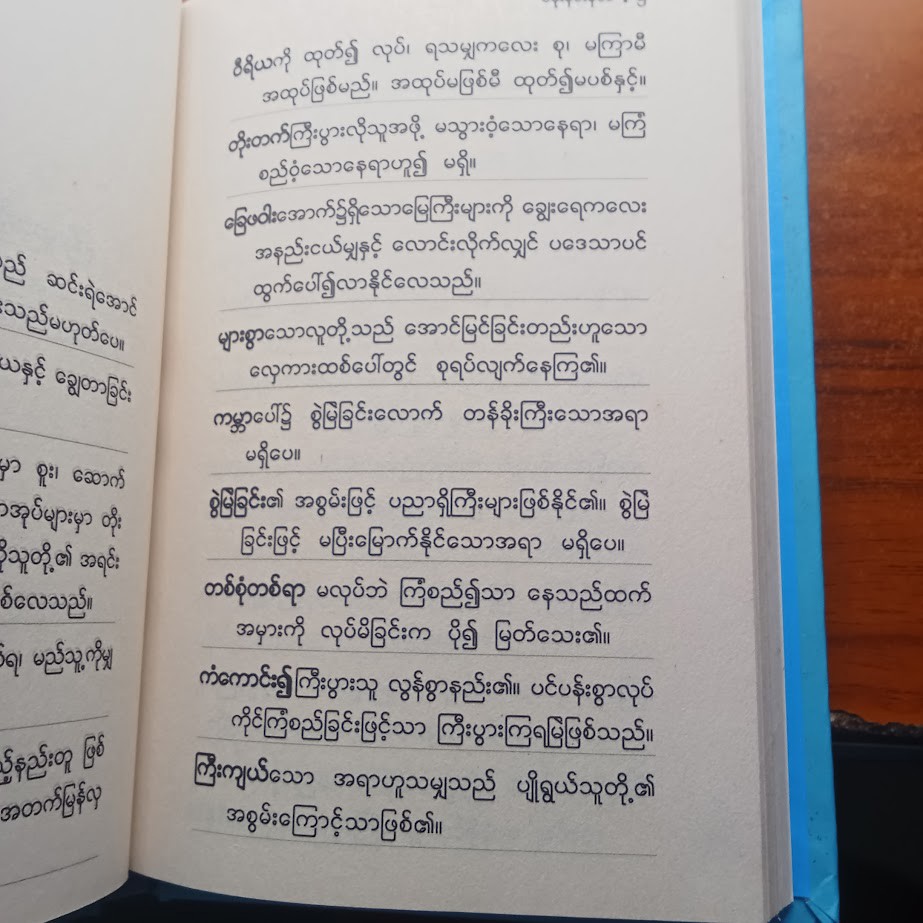 ည် ဆင်းရဲအောင်
သည်မဟုတ်ပေ။
ယနှင့် ချွေတာခြင်း
မှာ စူး၊ ဆောက်
အုပ်များမှာ တိုး
သူတို့၏ အရင်း
စ်လေသည်။
မည်သူ့ကိုမျှ
နည်းတူ ဖြစ်
အတက်မြန်လှ
ဝီရိယကို ထုတ်၍ လုပ်၊ ရသမျှကလေး စု၊ မကြာမီ
အထုပ်ဖြစ်မည်။ အထုပ်မဖြစ်မီ ထုတ်၍မပစ်နှင့်။
တိုးတက်ကြီးပွားလိုသူအဖို့ မသွားဝံ့သောနေရာ၊ မကြံ
စည်ဝံ့သောနေရာဟူ၍ မရှိ။
ခြေဖဝါးအောက်၌ရှိသောမြေကြီးများကို ချွေးရေကလေး
အနည်းငယ်မျှနှင့် လောင်းလိုက်လျှင် ပဒေသာပင်
ထွက်ပေါ်၍လာနိုင်လေသည်။
များစွာသောလူတို့သည် အောင်မြင်ခြင်းတည်းဟူသော
လှေကားထစ်ပေါ်တွင် စုရပ်လျက်နေကြ၏။
ကမ္ဘာပေါ်၌ စွဲမြဲခြင်းလောက် တန်ခိုးကြီးသောအရာ
မရှိပေ။
စွဲမြဲခြင်း၏ အစွမ်းဖြင့် ပညာရှိကြီးများဖြစ်နိုင်၏။ စွဲမြဲ
ခြင်းဖြင့် မပြီးမြောက်နိုင်သောအရာ မရှိပေ။
တစ်စုံတစ်ရာ မလုပ်ဘဲ ကြံစည်၍သာ နေသည်ထက်
အမှားကို လုပ်မိခြင်းက ပို၍ မြတ်သေး၏။
ကံကောင်း၍ကြီးပွားသူ လွန်စွာနည်း၏။ ပင်ပန်းစွာလုပ်
ကိုင်ကြံစည်ခြင်းဖြင့်သာ ကြီးပွားကြရမြဲဖြစ်သည်။
ကြီးကျယ်သော အရာဟူသမျှသည် ပျိုရွယ်သူတို့၏
အစွမ်းကြောင့်သာဖြစ်၏။